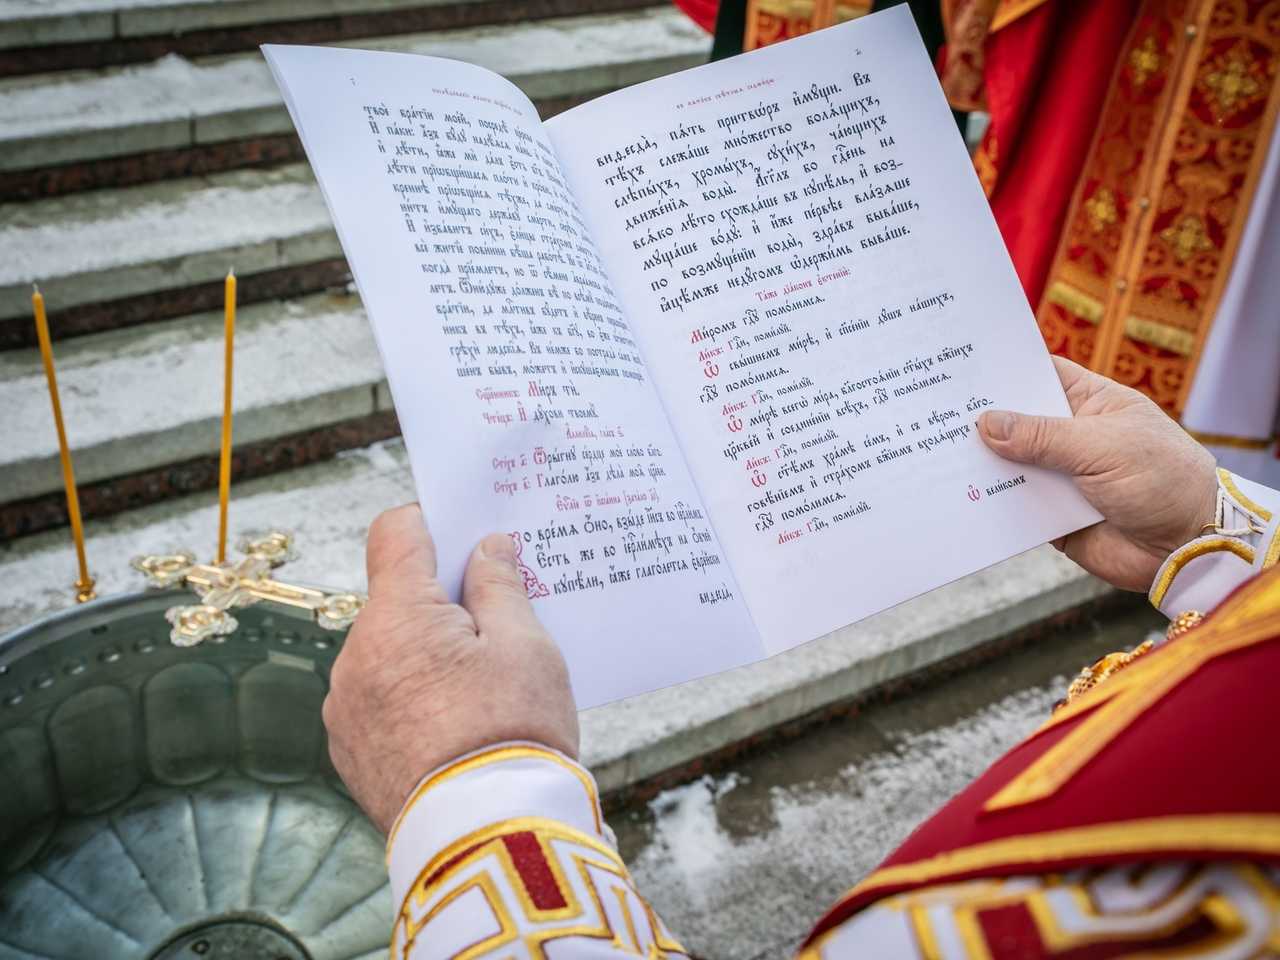 твоѐ бра́тїи мое́й, посредѣ̀
И҆ па́ки: а҆́зъ бꙋ́дꙋ надѣ́ѧсѧ на́нь.
и҆ дѣ́ти, ꙗ҆̀же мѝ далъ є҆́сть бг҃ъ.
дѣ́ти прїѡбщи́шасѧ пло́ти и҆ кро́ви,
кре́ннѣ прїѡбщи́сѧ тѣ́хже, да сме́ртїю
ни́тъ и҆мꙋ́щаго держа́вꙋ сме́рти,
И҆ и҆зба́витъ си́хъ, є҆ли́цы стра́хомъ сме́рти
всѐ житїѐ пови́нни бѣ́ша рабо́тѣ. Не
когда̀ прїе́млетъ, но ѿ сѣ́мени а҆враа́мова
летъ. Ѿню́дꙋже до́лженъ бѣ̀ по всемꙋ̀ подо́битисѧ
бра́тїи, да ми́лостивъ бꙋ́детъ и҆ вѣ́ренъ первосвѧще́н-
никъ въ тѣ́хъ, ꙗ҆̀же къ бг҃ꙋ, во є҆́же ѡ҆чи́стити
грѣхѝ людскі́ѧ. Въ не́мже бо пострада̀ са́мъ и҆скꙋ-
ше́нъ бы́въ, мо́жетъ и҆ и҆скꙋша́ємымъ помощѝ.
Сщ҃е́нникъ: Ми́ръ тѝ.
Чте́цъ: И҆ дꙋ́хови твоемꙋ̀.
А҆ллилꙋ́їа, гла́съ ѕ҃.
Сті́хъ а҃: Ѿры́гнꙋ се́рдце моѐ сло́во бл҃го.
Сті́хъ в҃: Глаго́лю а҆́зъ дѣла̀ моѧ̑ цр҃е́ви.
Є҆ѵⷢ҇лїе ѿ і҆ѡа́нна (зача́ло д҃і).
Во вре́мѧ ѻ҆́но, взы́де і҆и҃съ во і҆ерⷭ҇ли́мъ.
Є҆́сть же во і҆ерⷭ҇ли́мѣхъ на ѻ҆́вчей
кꙋпѣ́ли, ꙗ҆́же глаго́летсѧ є҆вре́йски
виде́сда̀,
въ нача́лѣ свѣ́тлыѧ седми́цы
виде́сда̀, пѧ́ть притвѡ́ръ и҆мꙋ́щи. Въ
тѣ́хъ слежа́ше мно́жество болѧ́щихъ,
слѣпы́хъ, хромы́хъ, сꙋхи́хъ, ча́ющихъ
движе́нїѧ воды̀. А҆́гг҃лъ бо гдⷭ҇ень на
всѧ́ко лѣ́то схожда́ше въ кꙋпѣ́ль, и҆ воз-
мꙋща́ше во́дꙋ: и҆ и҆́же пе́рвѣе влазѧ́ше
по возмꙋще́нїи воды̀, здра́въ быва́ше,
ꙗ҆цѣ́мже недꙋ́гомъ ѡ҆держи́мь быва́ше.
Та́же дїа́конъ є҆ктенїѝ:
Ми́ромъ гдⷭ҇ꙋ помо́лимсѧ.
Ли́къ: Гдⷭ҇и, поми́лꙋй.
Ѡ҆ свы́шнемъ ми́рѣ, и҆ спⷭ҇е́нїи дꙋ́шъ на́шихъ,
гдⷭ҇ꙋ помо́лимсѧ.
Ли́къ: Гдⷭ҇и, поми́лꙋй.
Ѡ҆ ми́рѣ всегѡ̀ мі́ра, бл҃госто́ѧнїи ст҃ы́хъ бж҃їихъ
цр҃кве́й и҆ соедине́нїи всѣ́хъ, гдⷭ҇ꙋ помо́лимсѧ.
Ли́къ: Гдⷭ҇и, поми́лꙋй.
Ѡ҆ ст҃ѣ́мъ хра́мѣ се́мъ, и҆ съ вѣ́рою, бл҃го-
говѣ́нїемъ и҆ стра́хомъ бж҃їимъ входѧ́щихъ
гдⷭ҇ꙋ помо́лимсѧ.
Ли́къ: Гдⷭ҇и, поми́лꙋй.
Ѡ҆ вели́комъ